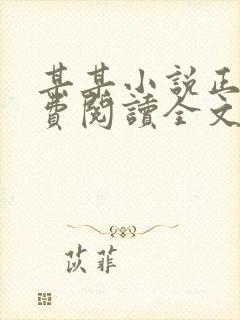 某某小說正
費閱讀全文
苡菲